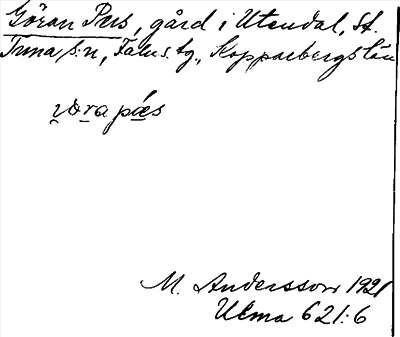 Göran Pers, gård i Utendal, St.
Tuna s:n, Falu s. tg., Kopparbergs län
vöra pæs
M. Andersson 1921
Ulma 621:6